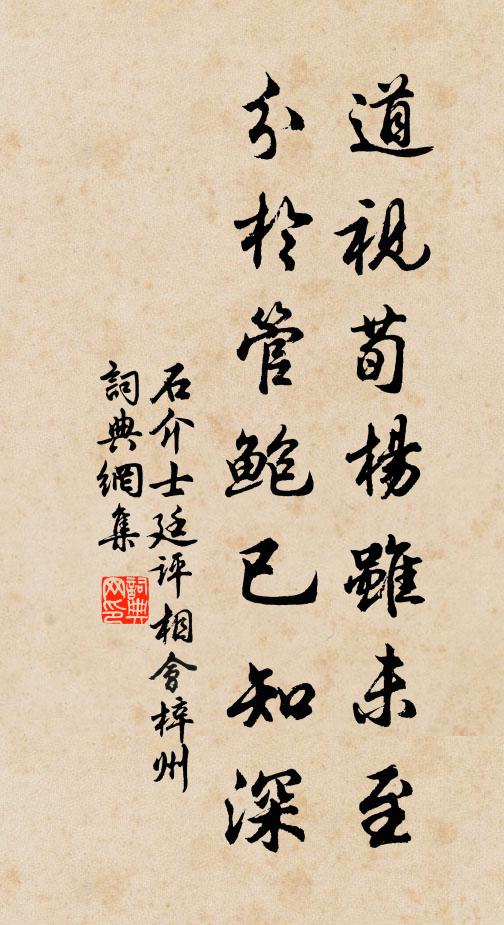 道視荀楊雖未至
分於管鮑已知深
石介士廷評相會梓州
詞典網集
詞典网印